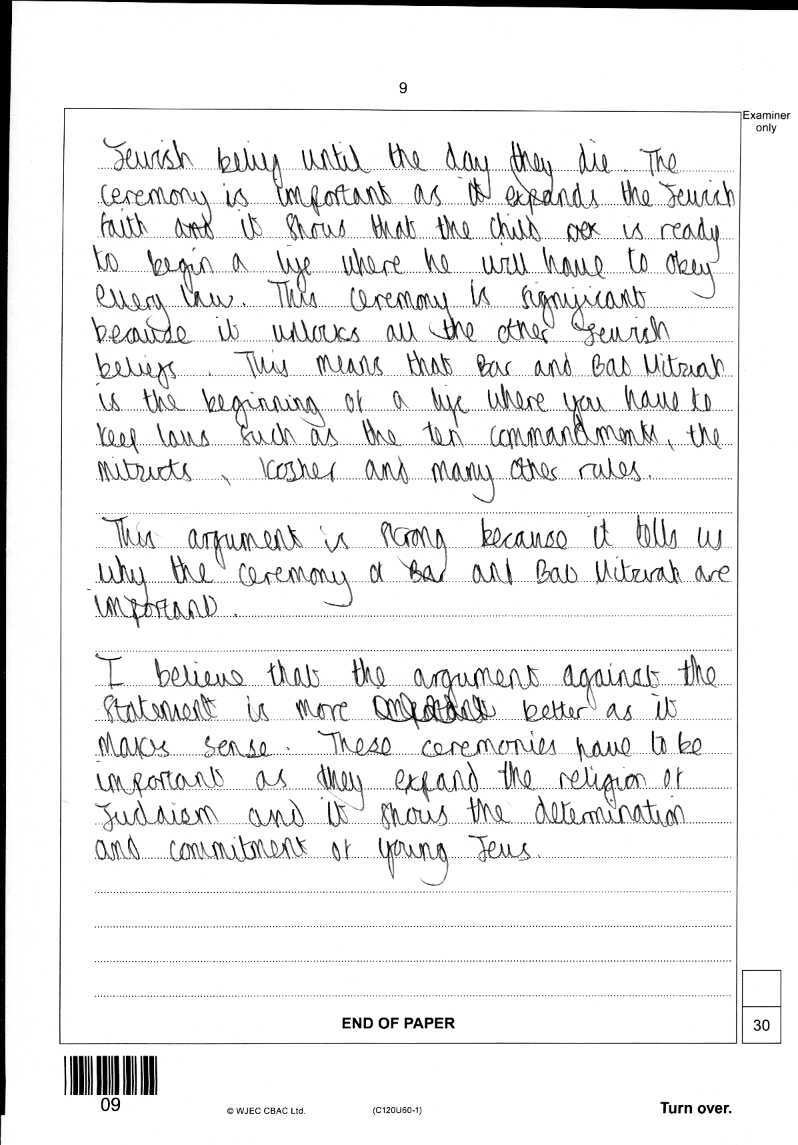 9
Examiner
only
Jewish belief until the day they die. The
ceremony is important as it expands the Jewish
faith and it shows that the child is ready
to begin a life where he will have to obey
every law. This ceremony is significant
because it unlocks all the other Jewish
beliefs. This means that Bar and Bat Mitzvah
is the beginning of a life where you have to
keep laws such as the ten commandments, the
mitzvots, kosher and many other rules.
This argument is strong because it tells us
why the ceremony of Bar and Bat Mitzvah are
important.
I believe that the argument against the
statement is more better as it
makes sense. These ceremonies have to be
important as they expand the religion of
Judaism and it shows the determination
and commitment of young Jews.
END OF PAPER
30
09
© WJEC CBAC Ltd.
(C120U60-1)
Turn over.